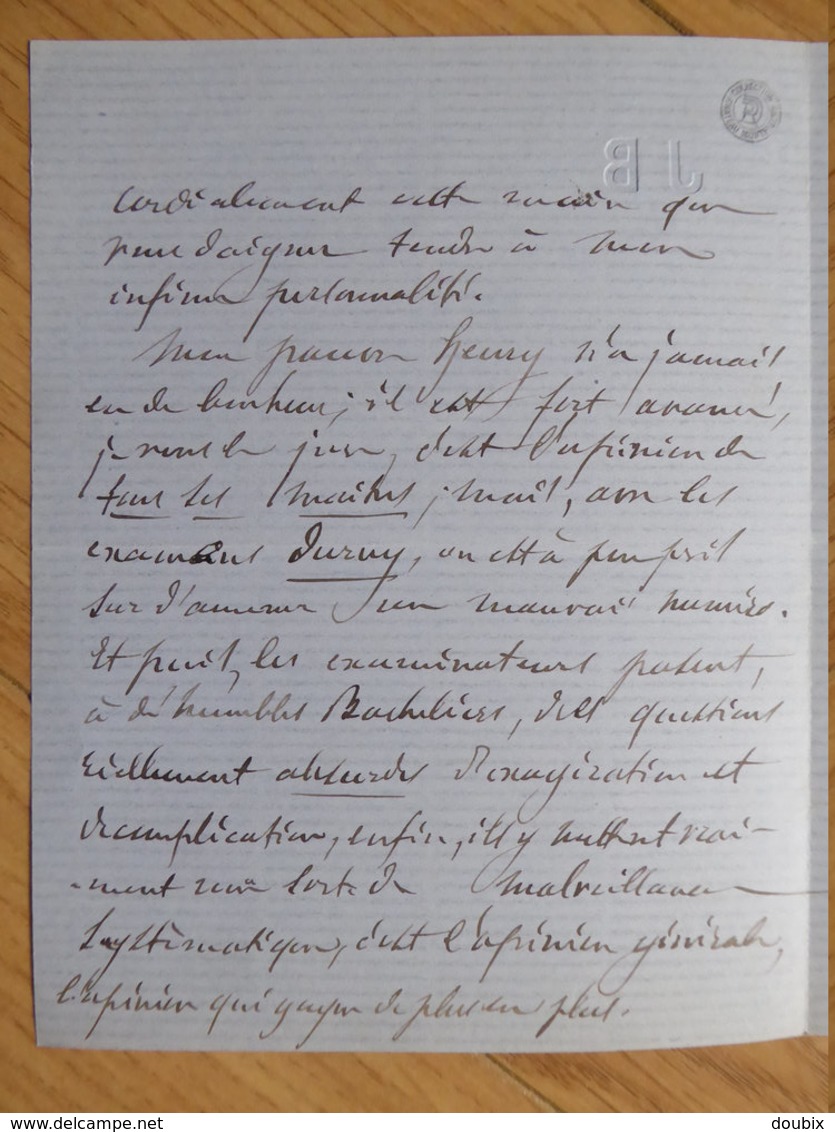 cordialement cette main que
vous daignez tendre à mon
infime personnalité.
Mon pauvre Henry n'a jamais
eu de bonheur; il est fort avancé,
je vous le jure, c'est l'opinion de
tous ses maîtres; mais, avec les
examens Duruy, on est à peu près
sûr d'amener un mauvais numéro.
Et puis, les examinateurs posent,
à d'humbles Bacheliers, des questions
réellement absurdes d'exagération et
de complication, enfin, ils y mettent vrai-
-ment une sorte de malveillance
systématique, c'est l'opinion générale,
l'opinion qui gagne de plus en plus.
JB
delcampe.net
doubix